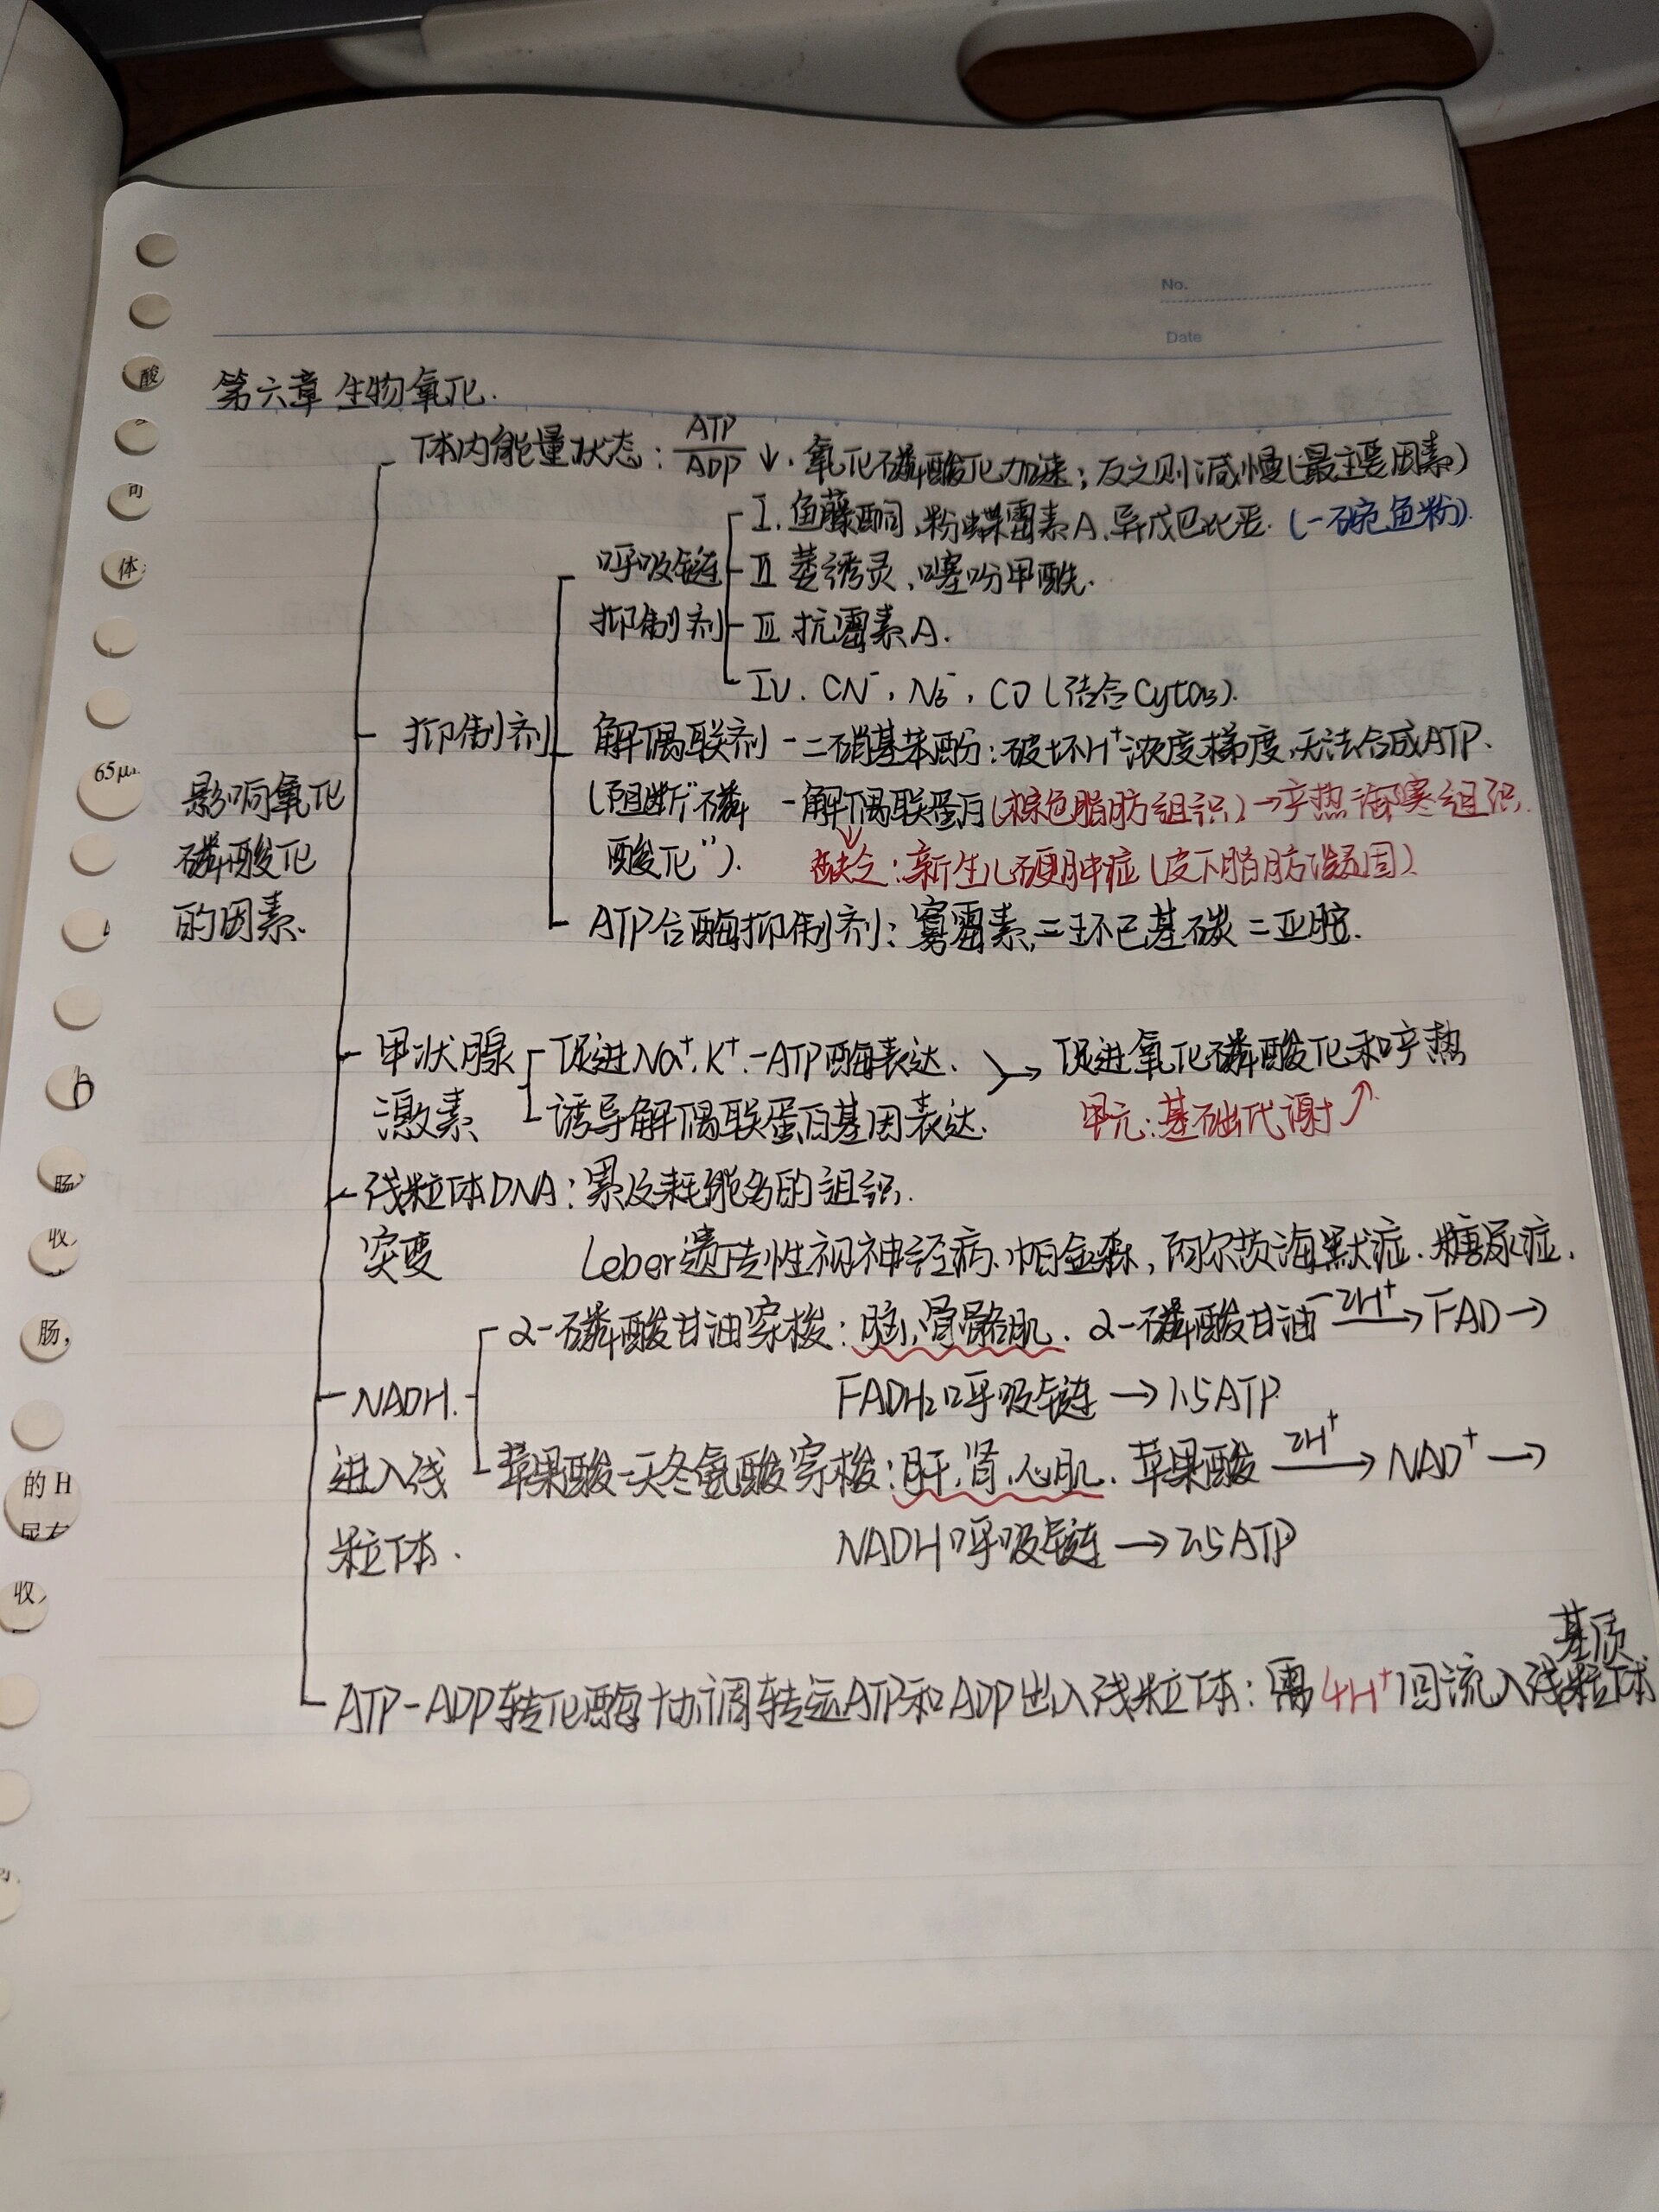 No.
Date
第六章 生物氧化.
体内能量状态: ATP/ADP ↓. 氧化磷酸化加速; 反之则减慢(最主要因素)
I. 鱼藤酮, 粉蝶霉素A, 异戊巴比妥. (一碗鱼粉).
呼吸链
II 萎锈灵、噻吩甲酰.
抑制剂
III 抗霉素A.
IV. CN⁻, N₃⁻, CO (结合Cyta₃).
抑制剂
解偶联剂 - 二硝基苯酚: 破坏H⁺浓度梯度, 无法合成ATP.
(阻断"磷酸化").
- 解偶联蛋白(棕色脂肪组织)→产热御寒组织.
缺乏: 新生儿硬肿症(皮下脂肪凝固)
影响氧化
磷酸化
的因素.
ATP合酶抑制剂: 寡霉素, 二环己基碳二亚胺.
甲状腺
激素
促进Na⁺.K⁺-ATP酶表达.
诱导解偶联蛋白基因表达.
→ 促进氧化磷酸化和产热
甲亢: 基础代谢↑
线粒体DNA: 累及耗能多的组织.
突变
Leber遗传性视神经病、帕金森, 阿尔茨海默症. 糖尿症.
NADH.
进入线
粒体.
α-磷酸甘油穿梭: 脑, 骨骼肌. α-磷酸甘油 -2H⁺→ FAD →
FADH₂呼吸链 → 1.5ATP
苹果酸-天冬氨酸穿梭: 肝, 肾, 心肌. 苹果酸 2H⁺→ NAD⁺ →
NADH呼吸链 → 2.5ATP
基质
ATP-ADP转化酶协调转运ATP和ADP出入线粒体: 需4H⁺回流入线粒体
酸
可
体
65μ
肠
收
肠,
的 H
收